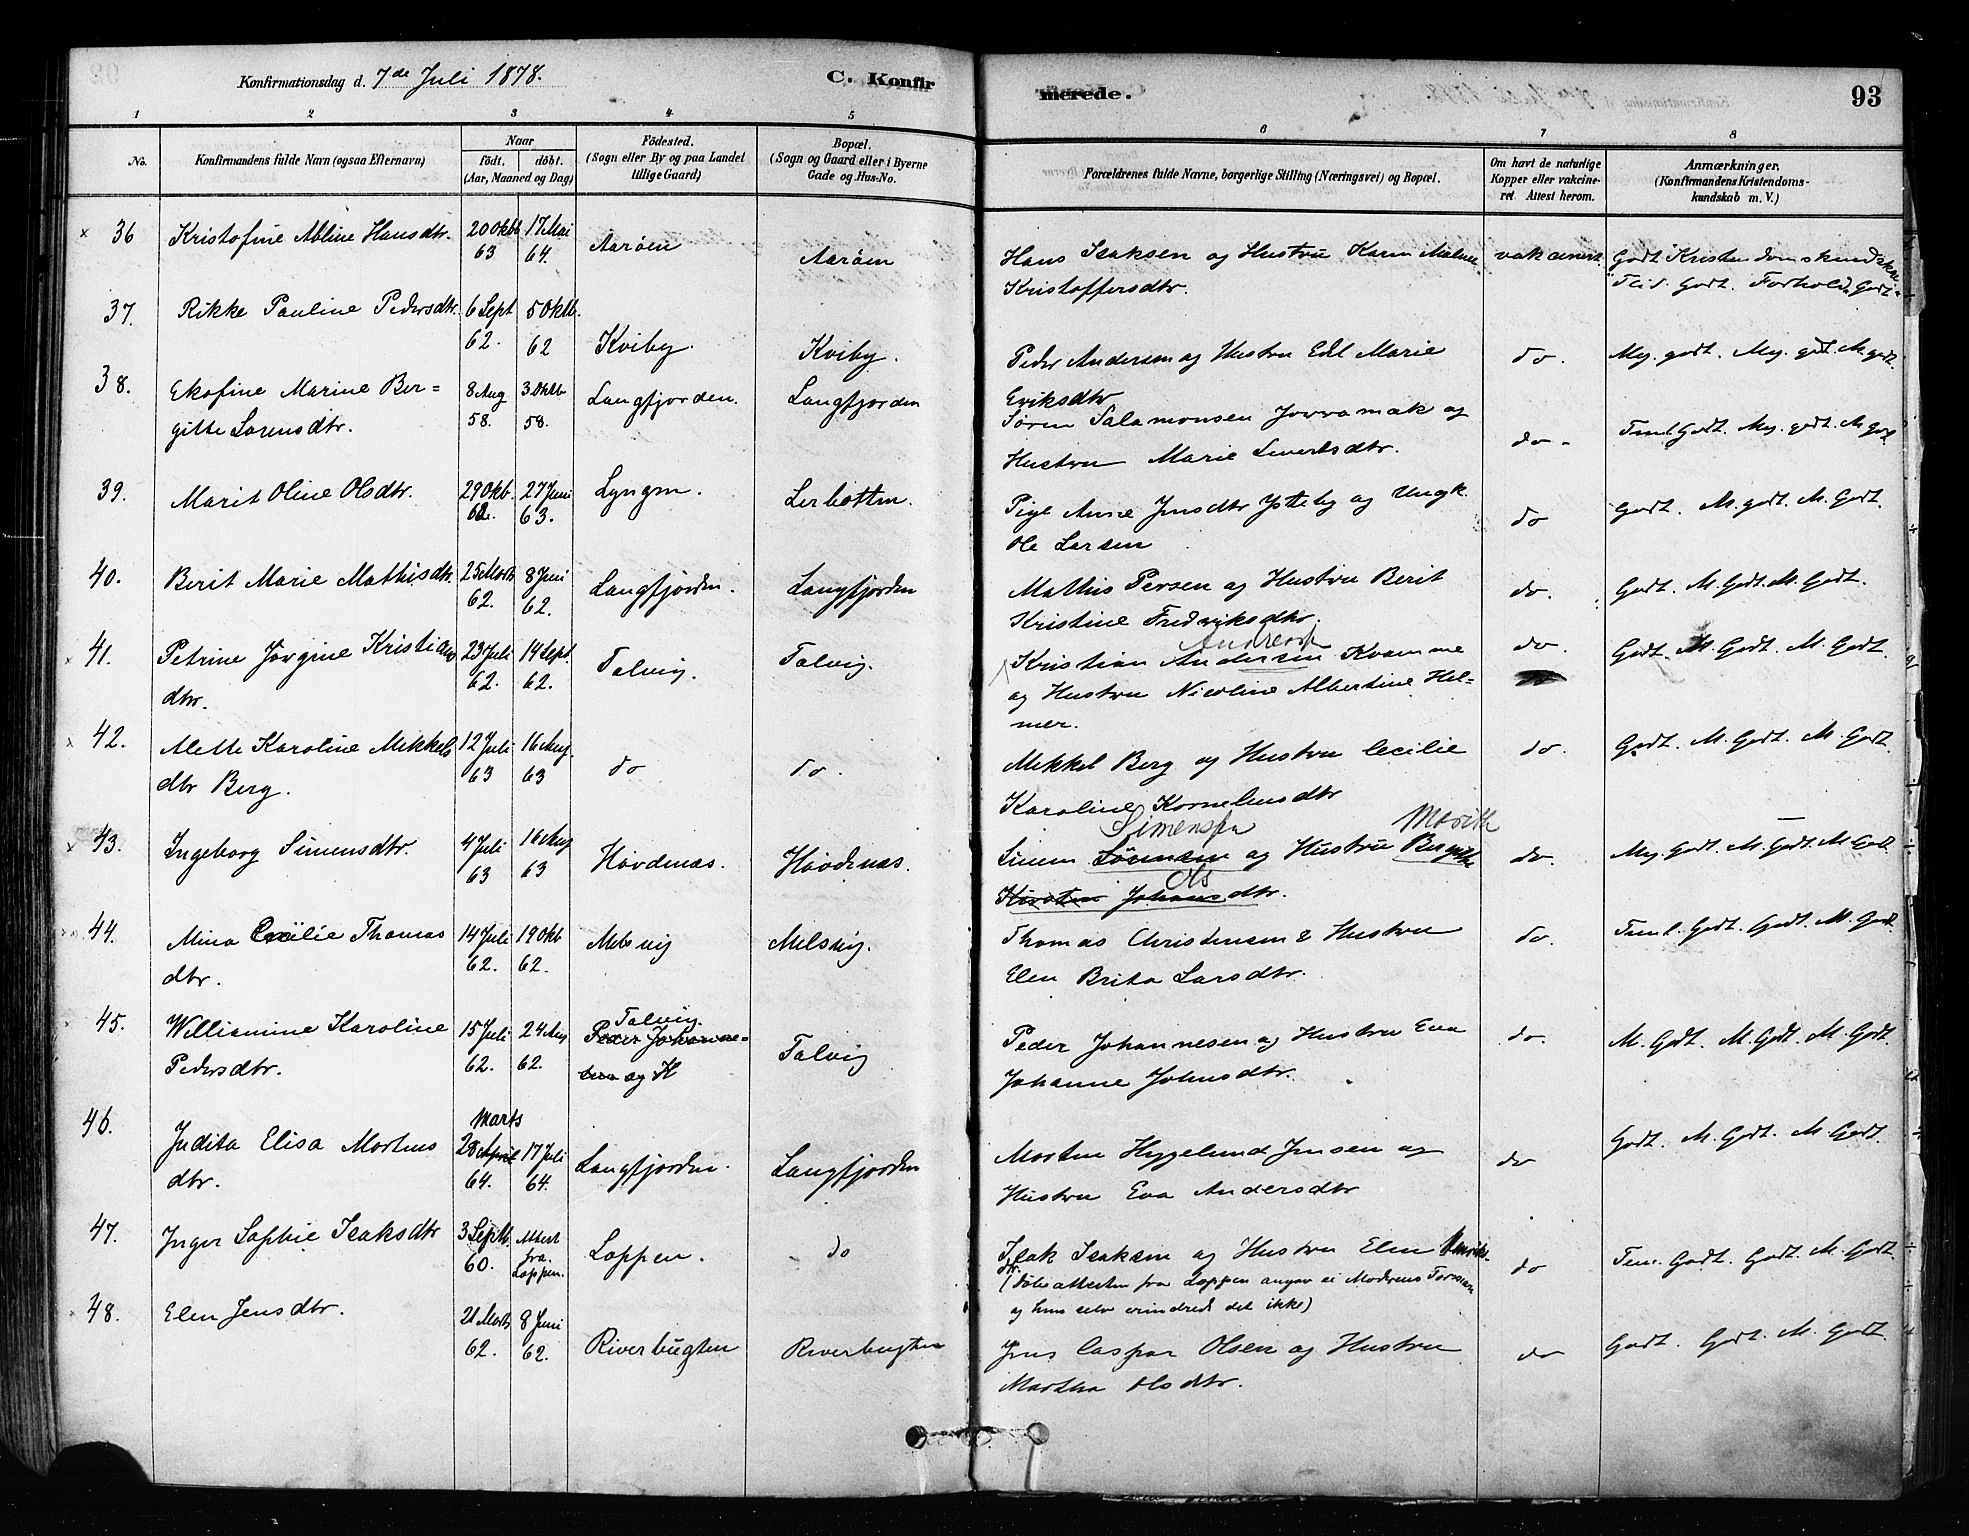 Konfirmationsdag d. 7de Juli 1878.
C. Konfir
merede.
93
1 2 3 4 5 6 7 8
No.
Konfirmandens fulde Navn (ogsaa Efternavn)
Naar
født. døbt.
(Aar, Maaned og Dag)
Födested.
(Sogn eller By og paa Landet
tillige Gaard)
Bopæl.
(Sogn og Gaard eller i Byerne
Gade og Hus-No.
Forældrenes fulde Navne, borgerlige Stilling (Næringsvei) og Bopæl.
Om havt de naturlige
Kopper eller vakcine-
ret Attest herom.
Anmærkninger.
(Konfirmandens Kristendoms-
kundskab m. V.)
× 36 Kristofine Abline Hansdtr. 20 Oktb 63 17 Mai 64. Aarøen Aarøen Hans Isaksen og Hustru Karen Malene vakcineret Godt Kristendomskundskab
Kristoffersdtr. Flid. Godt. Forhold. Godt.
37. Rikke Pauline Pedersdtr. 6 Sept 62. 5 Oktb. 62 Kviby. Kviby. Peder Andersen og Hustru Edl Marie do. Mg. godt. Mg. godt. M godt.
Eriksdtr
38. Ekofine Marine Ber= 8 Aug 58. 3 Oktb 58. Langfjorden. Langfjorden Søren Salamonsen Jovvamak og do. Teml. Godt. Mg. godt. M godt
gitte Sørensdtr. Hustru Marie Sivertsdtr.
39. Marit Oline Olsdtr. 29 Okb. 62. 27 Juni 63. Lyngen. Lerbotten. Pige Anne Jensdtr Ytteby og Ungk. do Godt. M. godt. M. Godt
Ole Larsen
40. Berit Marie Mathisdtr. 25 Marts 62. 8 Juni 62. Langfjorden. Langfjorden Mathis Persen og Hustru Berit do. Godt. M. Godt. M. Godt.
Kristine Fredriksdtr.
× 41. Petrine Jørgine Kristians 23 Juli 62. 14 Sept. 62. Talvig. Talvig. Kristian Andersen Kvamme do. Godt. M. Godt. M. Godt.
dtr. og Hustru Nicoline Albertine Hel=
mer.
× 42. Alette Karoline Mikkels 12 Juli 63 16 Aug. 63 do do. Mikkel Berg og Hustru Cecilie do. Godt. M. Godt. M. Godt.
dtr Berg. Karoline Korneliusdtr
Simensen Marith
× 43. Ingeborg Simensdtr. 4 Juli 63 16 Aug 63 Hovdenæs. Hovdenæs. Simen Sørensen og Hustru Bergitte do. Mg. Godt. M Godt. M Godt.
Ols
Kirsten Johansdtr.
44. Mina Cecilie Thomas 14 Juli 62. 19 Okb 62. Melsvig Melsvig. Thomas Christensen & Hustru do. Teml. Godt. Godt. M. Godt.
dtr. Elen Brita Larsdtr.
45. Williamine Karoline 15 Juli 62. 24 Aug 62. Talvig. Peder Johanne= Talvig Peder Johannesen og Hustru Eva do. M. Godt. M. Godt. M. Godt.
Pedersdtr. og H Johanne Johnsdtr.
46. Judita Elisa Mortens Marts 28 April 64. 17 Juli 64. Langfjorden. Langfjorden Morten Hyggelund Jensen og do Godt. M. Godt. M. Godt.
dtr. Hustru Eva Andersdtr
47. Inger Sophie Isaksdtr 3 Septb. 60. Attest fra Loppen. Loppen. do Isak Isaksen og Hustru Elen Henriks- do Tem. Godt. Godt. M. Godt
dtr. (Døbeattesten fra Loppen angav ei Moderens Fornavn
og hun selv erindrede det ikke)
48. Elen Jensdtr. 21 Marts 62. 8 Juni 62. Riverbugten Riverbugten Jens Caspar Olsen og Hustru do Godt. Godt. M. Godt.
Martha Olsdtr.